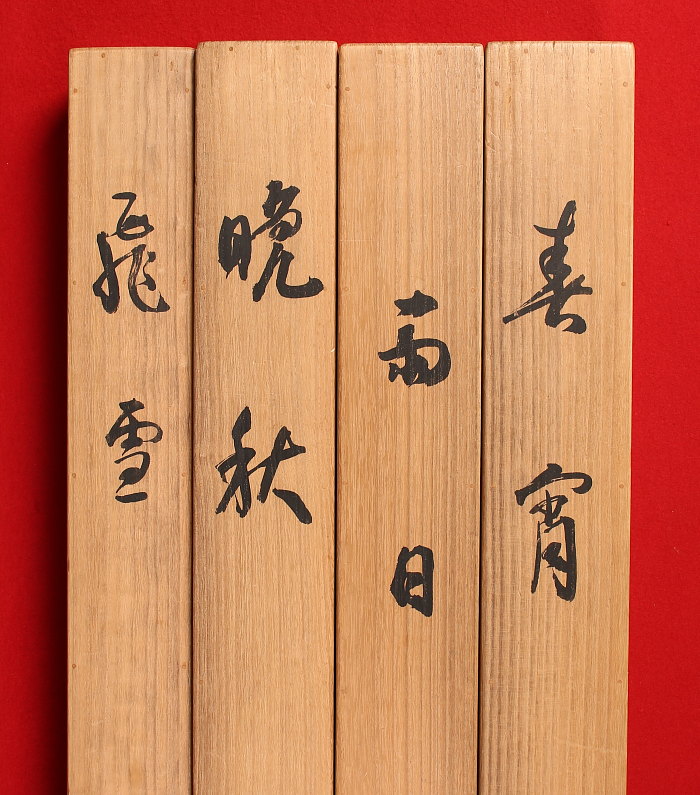 春宵
雨日
晩秋
飛雪